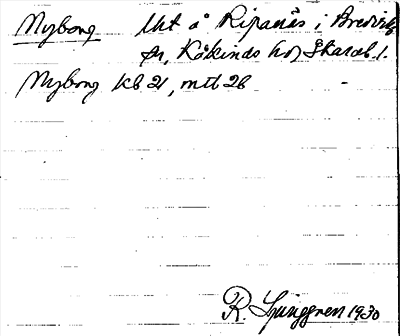 Nyborg lht å Ripanäs i Bredviks
sn, Kåkinds hd Skarab. l.
Nyborg kb 21, mtl 26 -
R. Ljunggren 1930